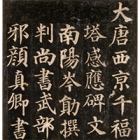 大唐西京千福
寺多寳佛
塔感應碑文
南陽岑勛撰
判尚書武部
邪顏真卿書